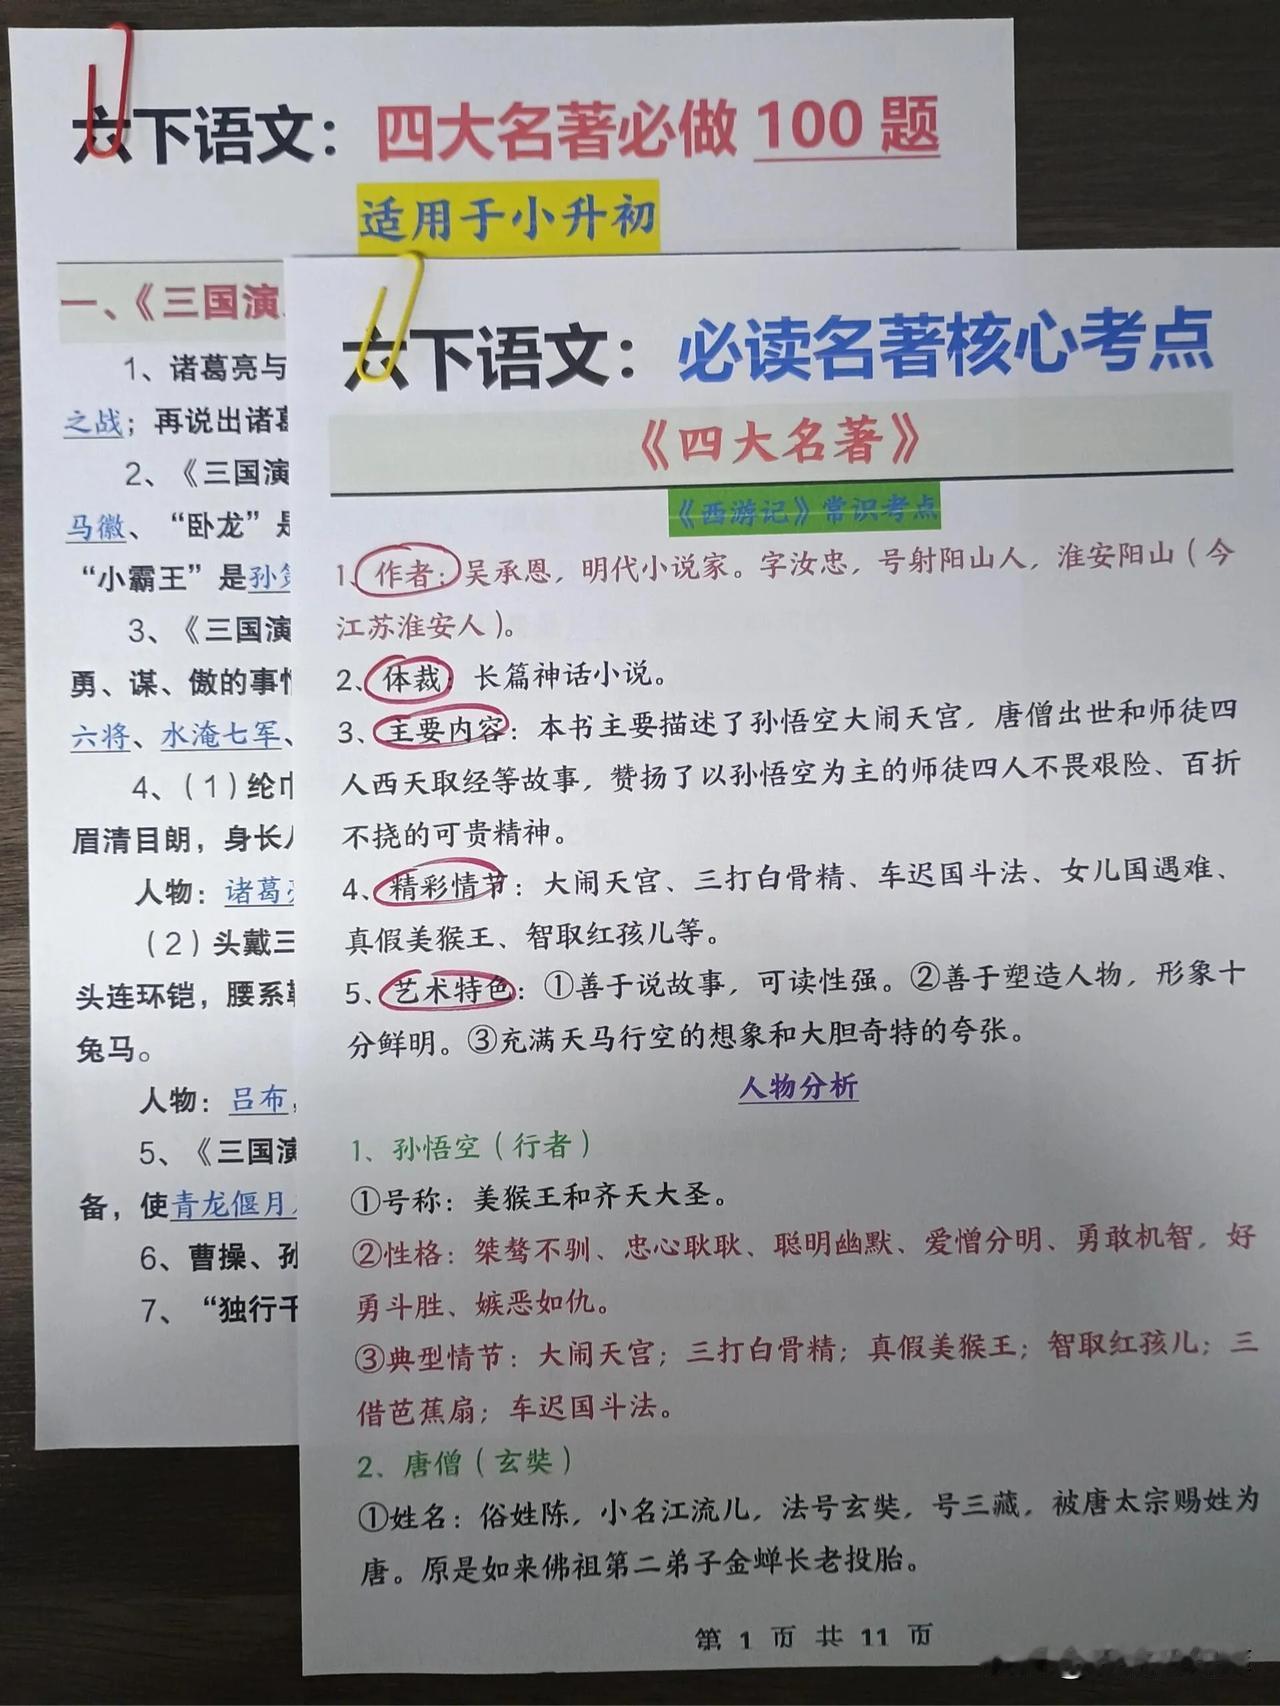 六下语文：四大名著必做 100 题
适用于小升初
一、《三国演
1、诸葛亮与
之战；再说出诸葛
2、《三国演
马徽、“卧龙”是
“小霸王”是孙策
3、《三国演
勇、谋、傲的事情
六将、水淹七军、
4、（1）纶巾
眉清目朗，身长八
人物：诸葛亮
（2）头戴三
头连环铠，腰系勒
兔马。
人物：吕布，
5、《三国演
备，使青龙偃月
6、曹操、孙
7、“独行千
六下语文：必读名著核心考点
《四大名著》
《西游记》常识考点
1、作者：吴承恩，明代小说家。字汝忠，号射阳山人，淮安阳山（今
江苏淮安人）。
2、体裁：长篇神话小说。
3、主要内容：本书主要描述了孙悟空大闹天宫，唐僧出世和师徒四
人西天取经等故事，赞扬了以孙悟空为主的师徒四人不畏艰险、百折
不挠的可贵精神。
4、精彩情节：大闹天宫、三打白骨精、车迟国斗法、女儿国遇难、
真假美猴王、智取红孩儿等。
5、艺术特色：①善于说故事，可读性强。②善于塑造人物，形象十
分鲜明。③充满天马行空的想象和大胆奇特的夸张。
人物分析
1、孙悟空（行者）
①号称：美猴王和齐天大圣。
②性格：桀骜不驯、忠心耿耿、聪明幽默、爱憎分明、勇敢机智，好
勇斗胜、嫉恶如仇。
③典型情节：大闹天宫；三打白骨精；真假美猴王；智取红孩儿；三
借芭蕉扇；车迟国斗法。
2、唐僧（玄奘）
①姓名：俗姓陈，小名江流儿，法号玄奘，号三藏，被唐太宗赐姓为
唐。原是如来佛祖第二弟子金蝉长老投胎。
第 1 页 共 11 页